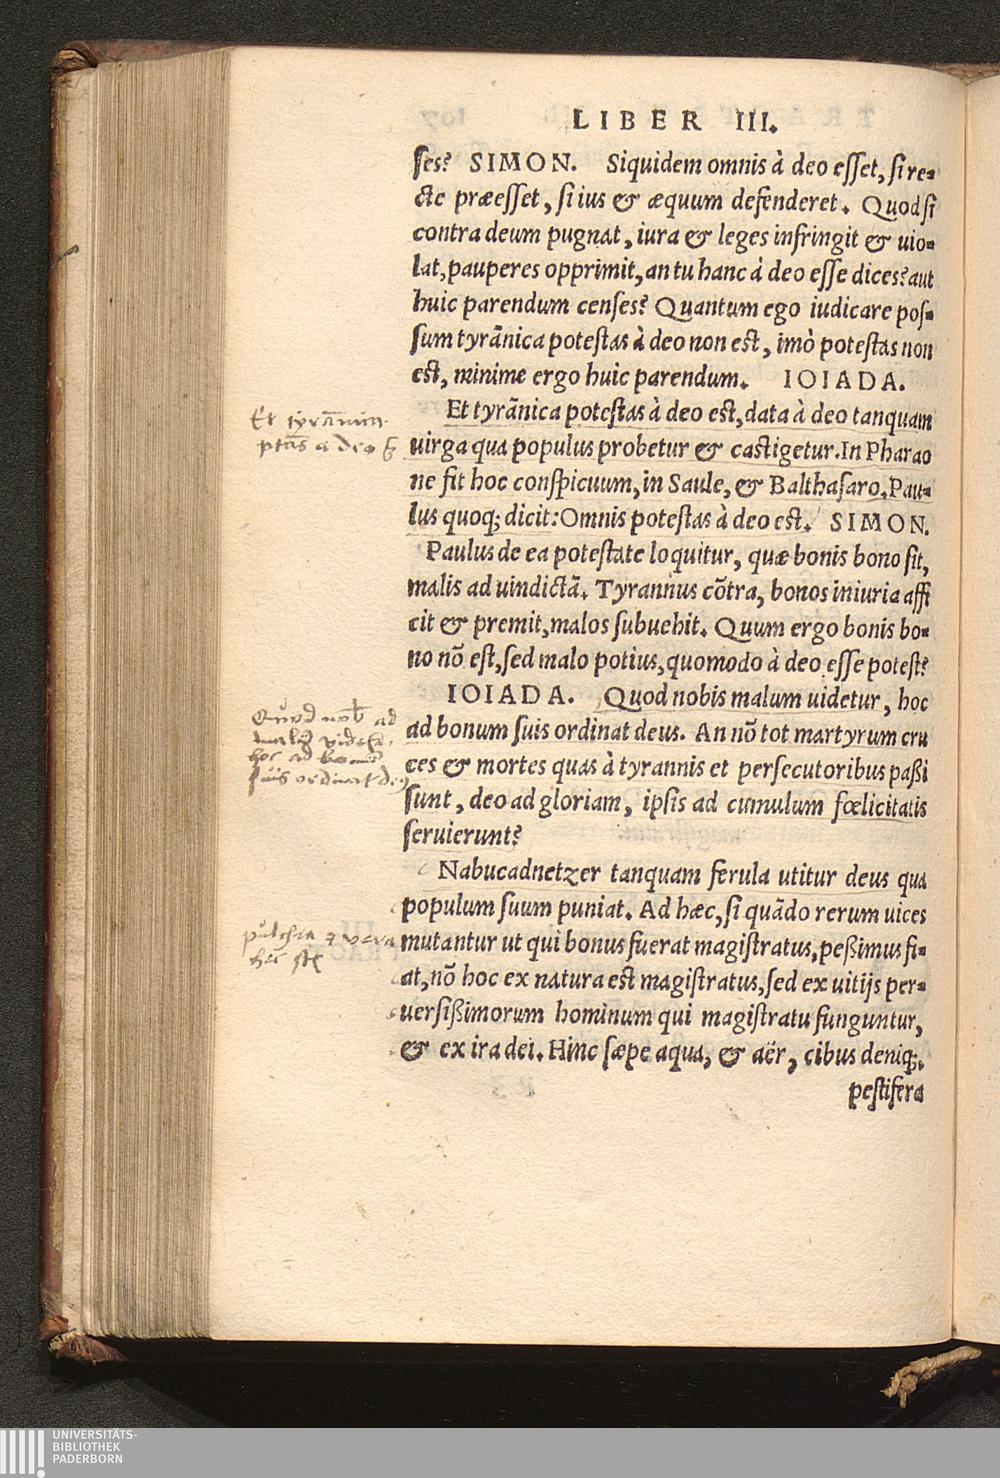 LIBER III.
ses? SIMON. Siquidem omnis à deo esset, si re-
cte præesset, si ius & æquum defenderet. Quod si
contra deum pugnat, iura & leges infringit & uio-
lat, pauperes opprimit, an tu hanc à deo esse dices? aut
huic parendum censes? Quantum ego iudicare pos-
sum tyrãnica potestas à deo non est, imò potestas non
est, minime ergo huic parendum. IOIADA.
Et tyrãnica potestas à deo est, data à deo tanquam
Et tyrãnica
ptãs a deo ē
uirga qua populus probetur & castigetur. In Pharao
ne fit hoc conspicuum, in Saule, & Balthasaro. Pau-
lus quoq; dicit: Omnis potestas à deo est. SIMON.
Paulus de ea potestate loquitur, quæ bonis bono sit,
malis ad uindictã. Tyrannus cõtra, bonos iniuria affi
cit & premit, malos subuehit. Quum ergo bonis bo-
no nõ est, sed malo potius, quomodo à deo esse potest?
IOIADA. Quod nobis malum uidetur, hoc
Quod nob ad
hoc ad bonum
suis ordinat deus
ad bonum suis ordinat deus. An nõ tot martyrum cru
ces & mortes quas à tyrannis et persecutoribus paßi
sunt, deo ad gloriam, ipsis ad cumulum fœlicitatis
seruierunt?
Nabucadnetzer tanquam ferula utitur deus qua
populum suum puniat. Ad hæc, si quãdo rerum uices
pulchra & vera
mutantur ut qui bonus fuerat magistratus, peßimus fi-
at, nõ hoc ex natura est magistratus, sed ex uitijs per-
uersißimorum hominum qui magistratu funguntur,
& ex ira dei. Hinc sæpe aqua, & aër, cibus deniq;.
pestifera
UNIVERSITÄTS-
BIBLIOTHEK
PADERBORN